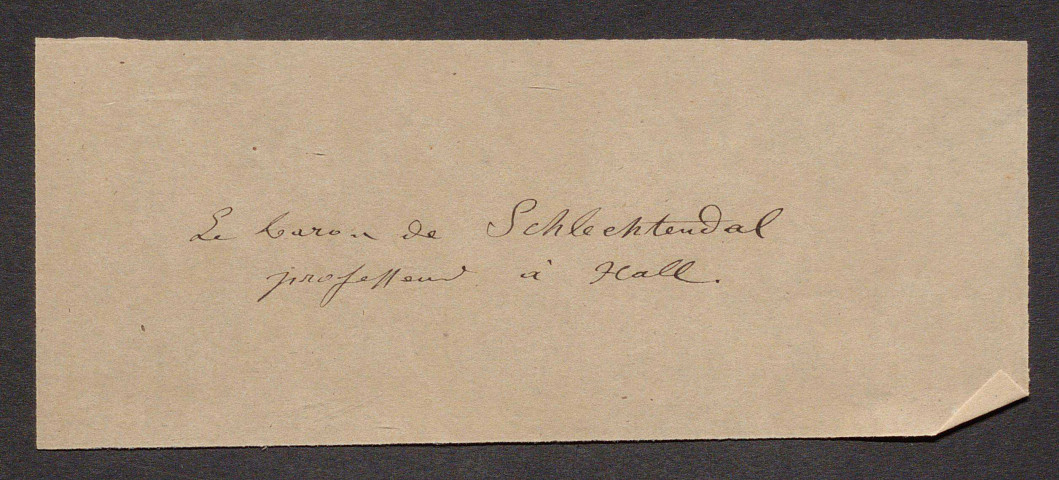 Le baron de Schlechtendal
professeur à Hall.